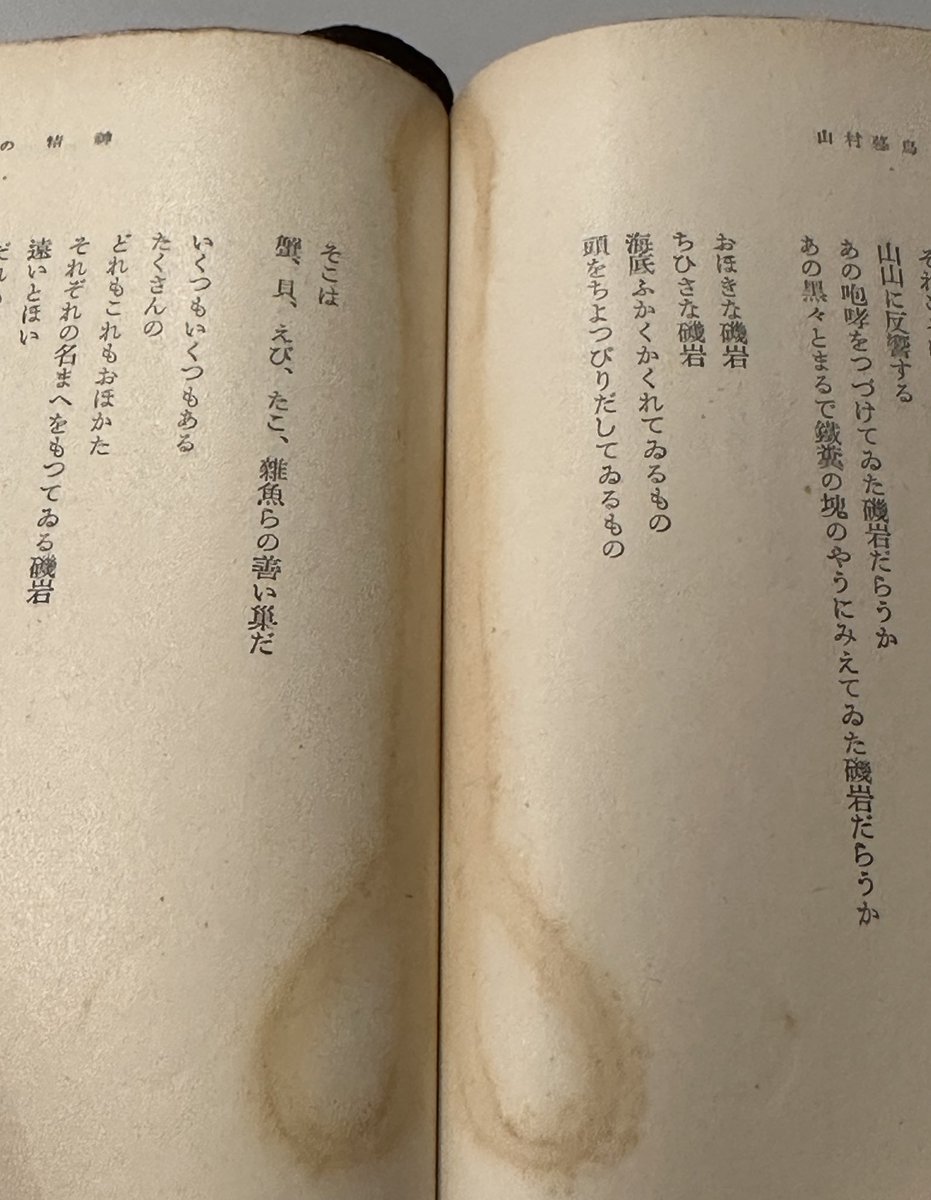 山村暮鳥
山山に反響する
あの咆哮をつづけてゐた磯岩だらうか
あの黒々とまるで鐵糞の塊のやうにみえてゐた磯岩だらうか
おほきな磯岩
ちひさな磯岩
海底ふかくかくれてゐるもの
頭をちよつぴりだしてゐるもの
の精神
そこは
蟹、貝、えび、たこ、雜魚らの善い巣だ
いくつもいくつもある
たくさんの
どれもこれもおほかた
それぞれの名まへをもつてゐる磯岩
遠いとほい